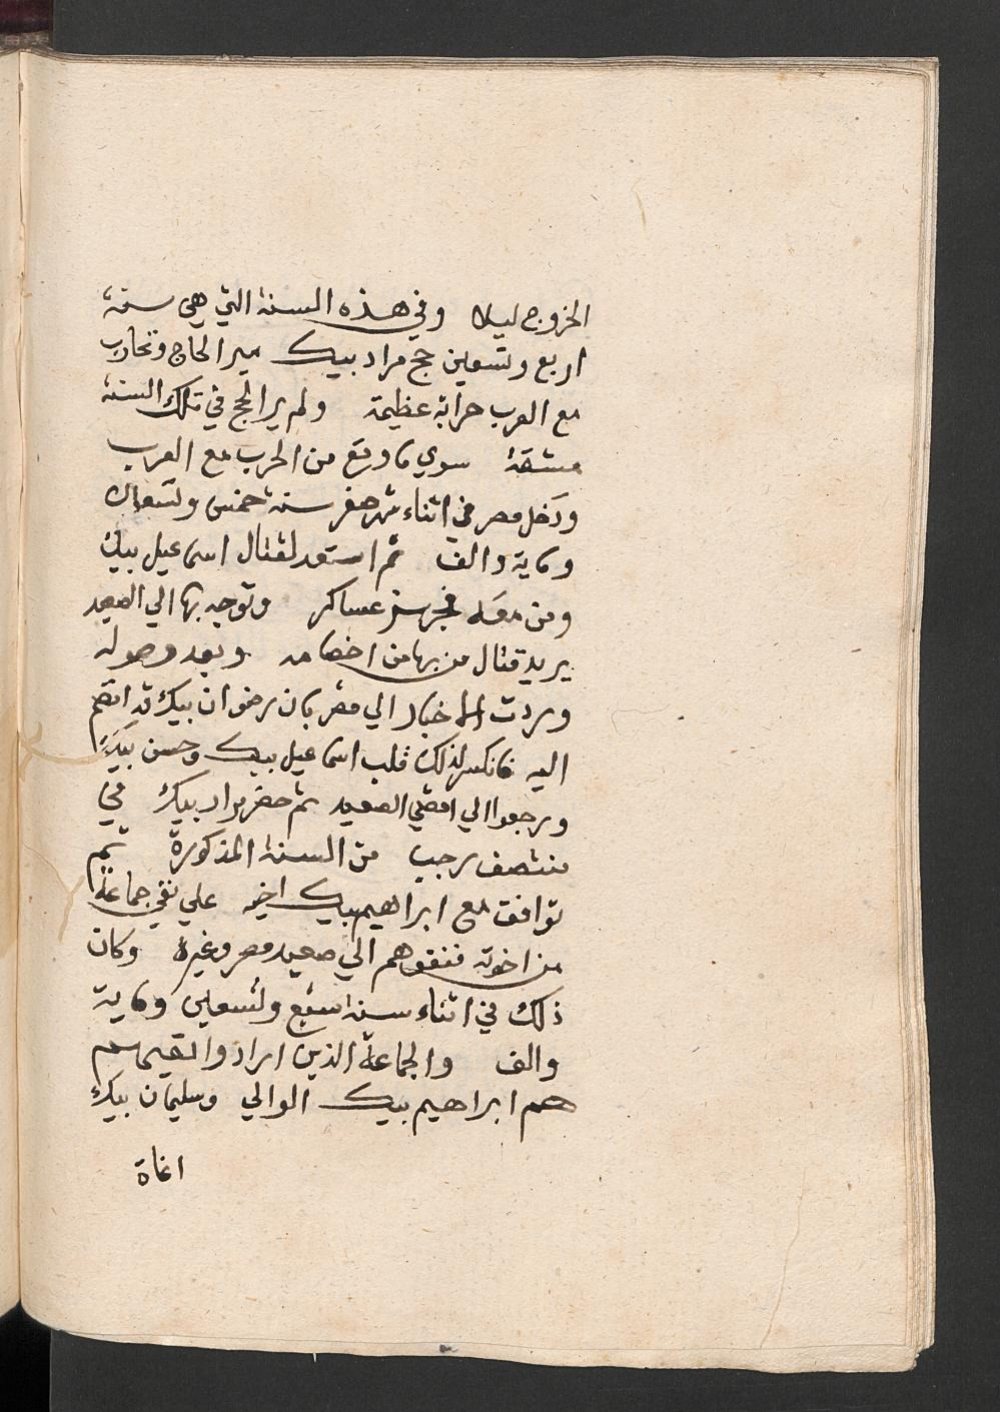 الخروج ليلا وفي هذه السنة التي هي سنة
اربع وتسعين حج مراد بيك مير الحاج وتحارب
مع العرب حرابة عظيمة ولم ير الحج في تلك السنة
مشقة سوي ما وقع من الحرب مع العرب
ودخل مصر في اثناء شهر صفر سنة خمس وتسعين
وماية والف ثم استعد لقتال اسماعيل بيك
ومن معه فجهز عساكر وتوجه بها الي الصعيد
يريد قتال من بها من اخصامه وبعد وصوله
وردت الاخبار الي مصر بان رضوان بيك قد انضم
اليه فانكسر لذلك قلب اسماعيل بيك وحسن بيك
ورجعوا الي اقصي الصعيد ثم حضر مراد بيك في
منتصف رجب من السنة المذكورة ثم
توافق مع ابراهيم بيك اخيه علي نفي جماعة
من اخوته فنفوهم الي صعيد مصر وغيره وكان
ذلك في اثناء سنة سبع وتسعين وماية
والف والجماعة الذين ارادوا نفيهم
هم ابراهيم بيك الوالي وسليمان بيك
اغاة